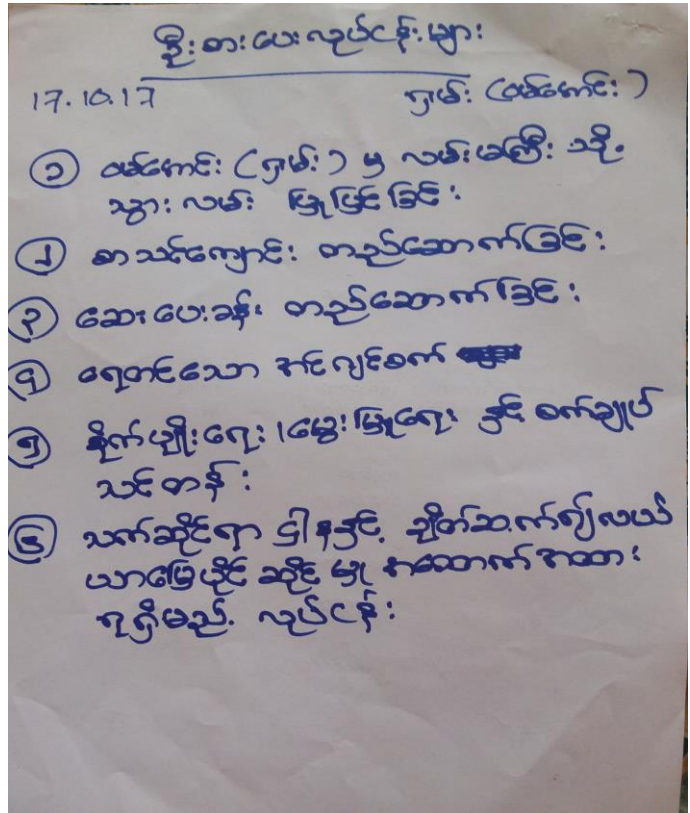 ဦးစားပေးလုပ်ငန်းများ
17.10.17 ရှမ်း (ဝမ်ကောင်း)
၁ ဝမ်ကောင်း (ရှမ်း) မှ လမ်းမကြီးသို့
သွားလမ်း ပြုပြင်ခြင်း
၂ စာသင်ကျောင်း တည်ဆောက်ခြင်း
၃ ဆေးပေးခန်း တည်ဆောက်ခြင်း
၄ ရေတင်သော အင်ဂျင်စက်
၅ စိုက်ပျိုးရေး၊ မွေးမြူရေး နှင့် စက်ချုပ်
သင်တန်း
၆ သက်ဆိုင်ရာ ဌါနနှင့် ချိတ်ဆက်၍ လယ်
ယာမြေပိုင်ဆိုင်မှု အထောက်အထား
ရရှိမည့် လုပ်ငန်း